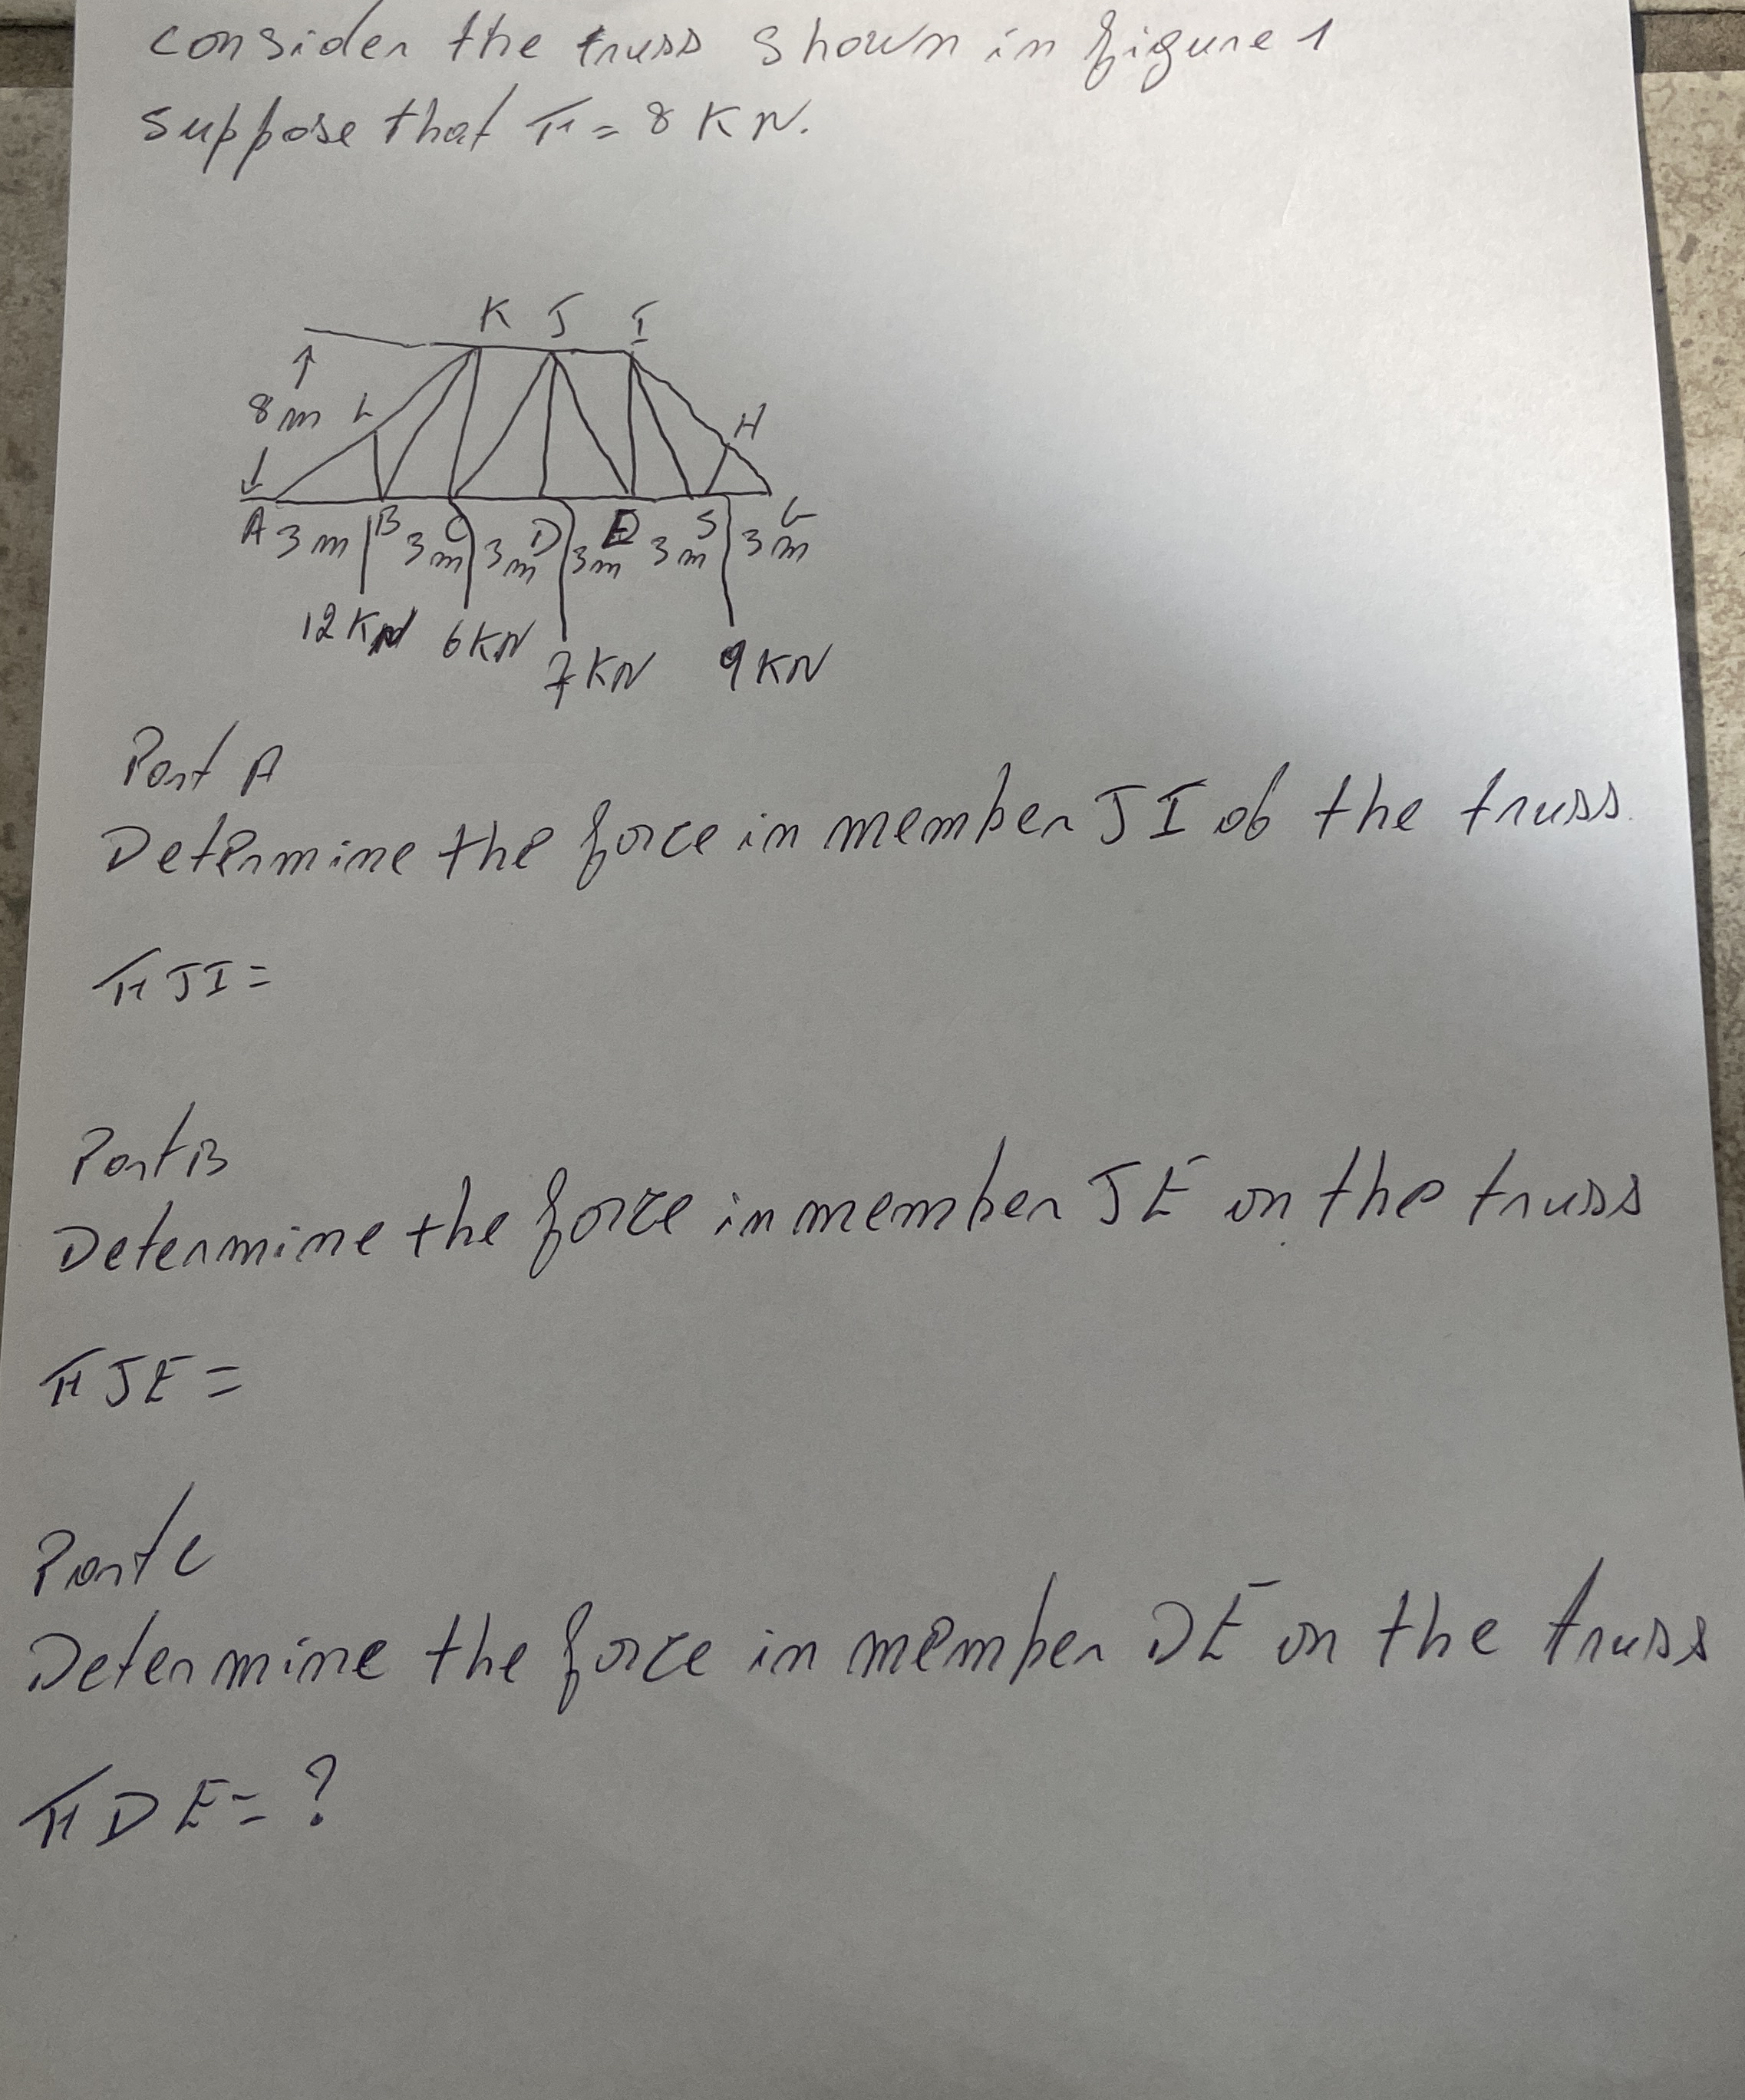 consider the truss shown in figure 1
suppose that F = 8 KN.
K J I
8 m L H
A 3 m B 3 m C 3 m D 3 m E 3 m S 3 m G
12 KN 6 KN 7 KN 9 KN
Part A
Determine the force in member JI of the truss.
F JI =
Part B
Determine the force in member JE on the truss
F JE =
Part C
Determine the force in member DE on the truss
F DE = ?